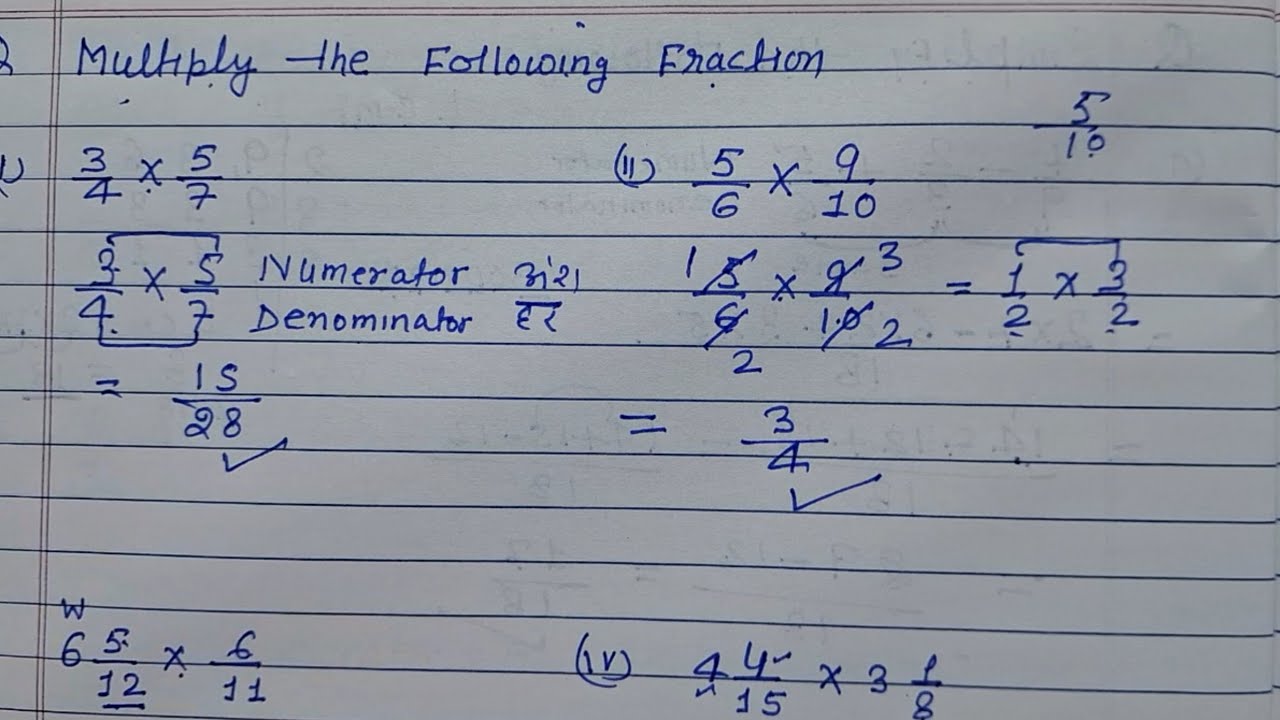 Multiply the Following Fraction
5/10
3/4 × 5/7
(II) 5/6 × 9/10
3/4 × 5/7 Numerator अंश Denominator हर
= 15/28 ✓
1 5/6 2 × 9 3/10 2 = 1/2 × 3/2
= 3/4 ✓
W
6 5/12 × 6/11
(IV) 4 4/15 × 3 1/8